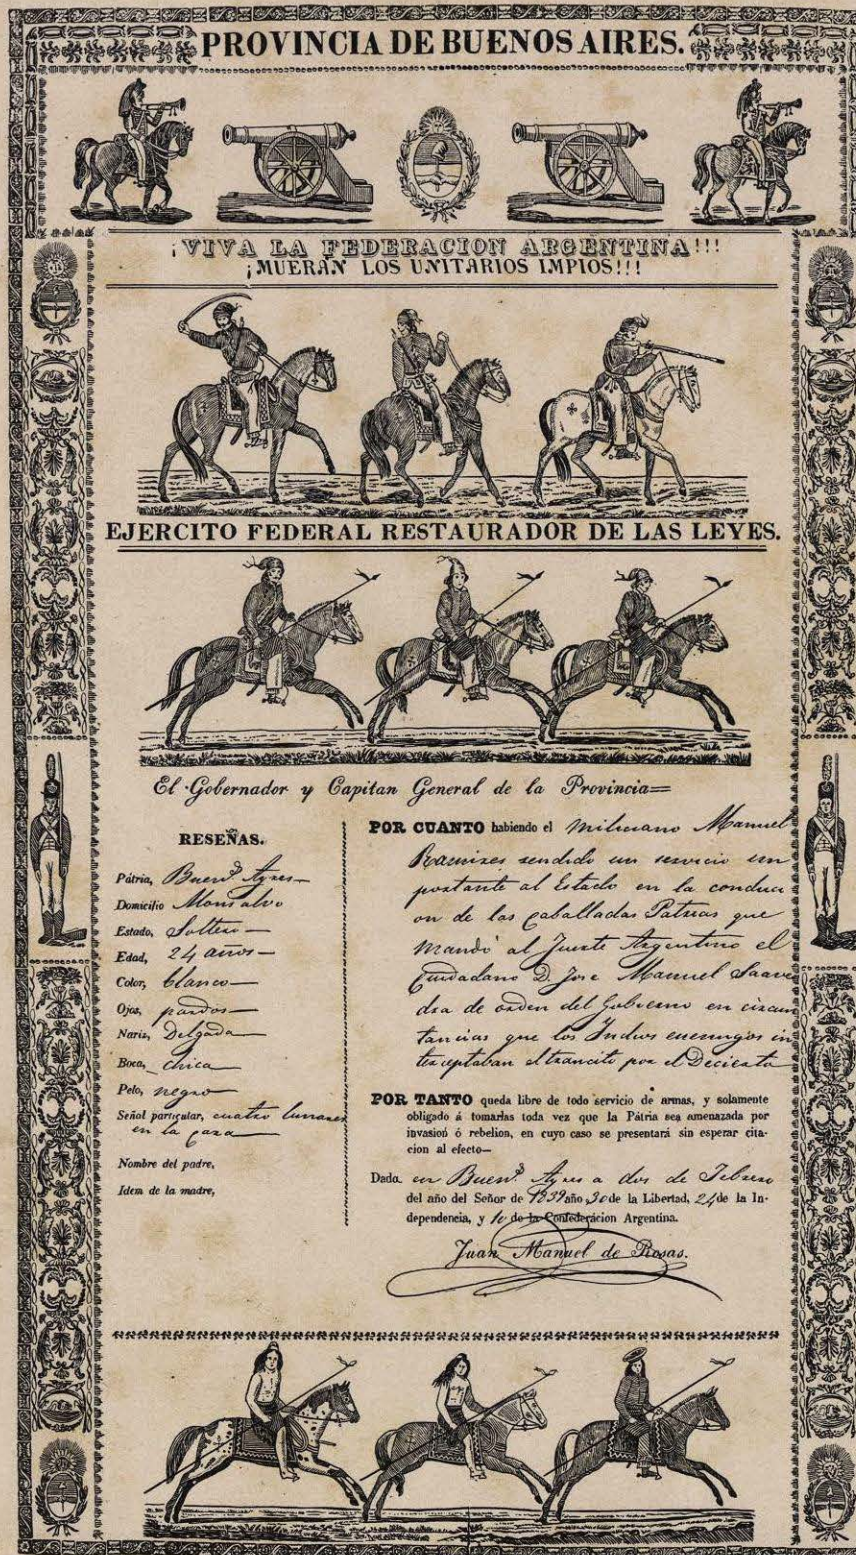 PROVINCIA DE BUENOS AIRES.
¡VIVA LA FEDERACION ARGENTINA!!!
¡MUERAN LOS UNITARIOS IMPIOS!!!
EJERCITO FEDERAL RESTAURADOR DE LAS LEYES.
El Gobernador y Capitan General de la Provincia=
RESEÑAS.
Pátria, Buens Ayres—
Domicilio Monsalvo
Estado, Soltero—
Edad, 24 años—
Color, blanco—
Ojos, pardos—
Nariz, Delgada—
Boca, chica
Pelo, negro
Señal particular, cuatro lunares
en la cara
Nombre del padre,
Idem de la madre,
POR CUANTO habiendo el Miliciano Manuel
Ramires rendido un servicio im
portante al Estado en la conducci
on de las caballadas Patrias que
mandó al fuerte Argentino el
Ciudadano D. Jose Manuel Saave
dra de orden del Gobierno en circuns
tancias que los Indios enemigos in
terceptaban el trancito por el Decierto
POR TANTO queda libre de todo servicio de armas, y solamente
obligado á tomarlas toda vez que la Pátria sea amenazada por
invasion ó rebelion, en cuyo caso se presentará sin esperar cita-
cion al efecto—
Dada en Buens Ayres a dos de Febrero
del año del Señor de 1839 año 30 de la Libertad, 24 de la In-
dependencia, y 10 de la Confederacion Argentina.
Juan Manuel de Rosas.